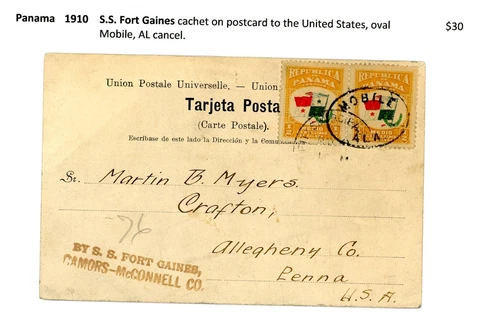 Panama 1910 S.S. Fort Gaines cachet on postcard to the United States, oval $30
Mobile, AL cancel.
Union Postale Universelle, — Union
REPUBLICA REPUBLICA
PANAMA PANAMA
Tarjeta Posta
(Carte Postale).
Escríbase de este lado la Dirección y la
MOBILE
ALA
MEDIO
Sr. Martin B. Myers.
Crafton,
-76
Allegheny Co.
Penna
U.S.A.
BY S. S. FORT GAINES,
CAMORS-McCONNELL CO.